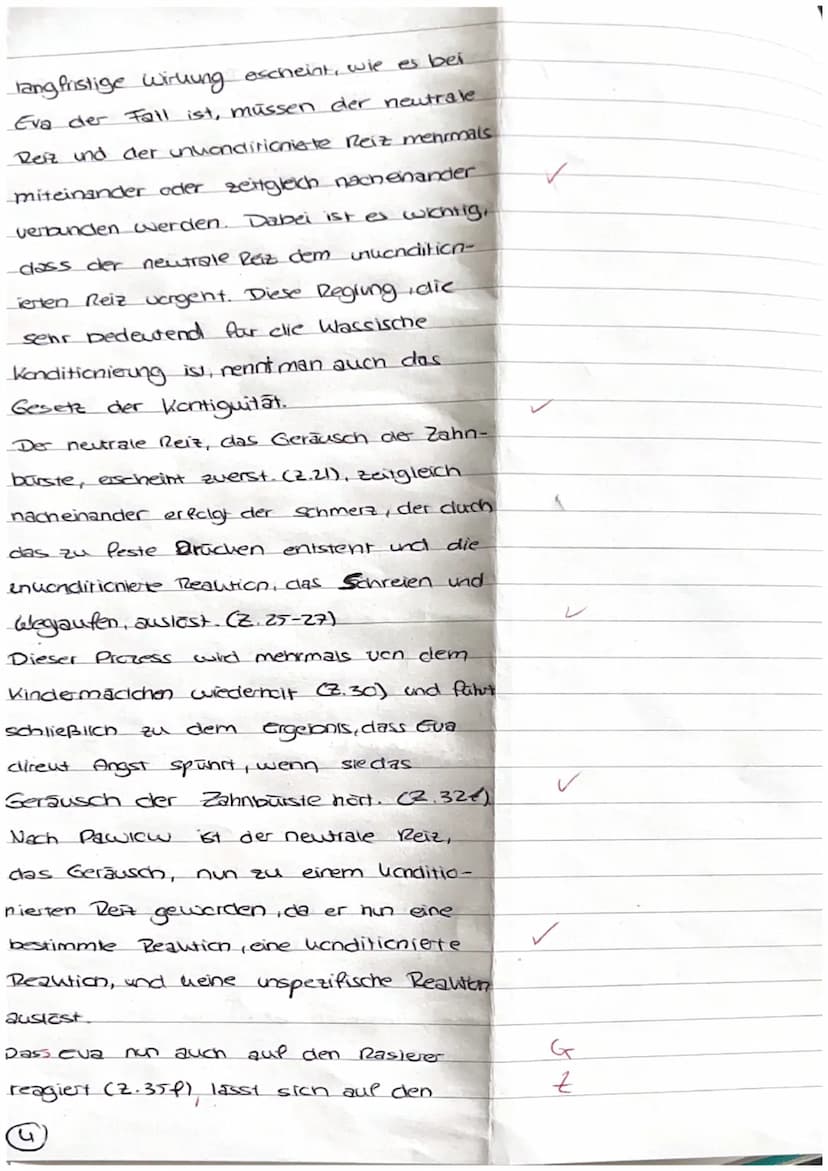 langfristige Wirkung erscheint, wie es bei
Eva der Fall ist, müssen der neutrale
Reiz und der unkonditionierte Reiz mehrmals
miteinander oder zeitgleich nacheinander
verbunden werden. Dabei ist es wichtig,
dass der neutrale Reiz dem unkondition-
ierten Reiz vorgeht. Diese Reglung, die
sehr bedeutend für die klassische
Konditionierung ist, nennt man auch das
Gesetz der Kontiguität.
Der neutrale Reiz, das Geräusch der Zahn-
bürste, erscheint zuerst. (Z.21), zeitgleich
nacheinander erfolgt der Schmerz, der durch
das zu feste Drücken entsteht und die
unkonditionierte Reaktion, das Schreien und
Weglaufen, auslöst. (Z.25-27)
Dieser Prozess wird mehrmals von dem
Kindermädchen wiederholt (Z.30) und führt
schließlich zu dem Ergebnis, dass Eva
direkt Angst spührt, wenn sie das
Geräusch der Zahnbürste hört. (Z.32f)
Nach Pawlow ist der neutrale Reiz,
das Geräusch, nun zu einem konditio-
nierten Reiz geworden, da er nun eine
bestimmte Reaktion, eine konditionierte
Reaktion, und keine unspezifische Reaktion
auslöst.
Dass Eva nun auch auf den Rasierer G
reagiert (Z.35f), lässt sich auf den Z
4